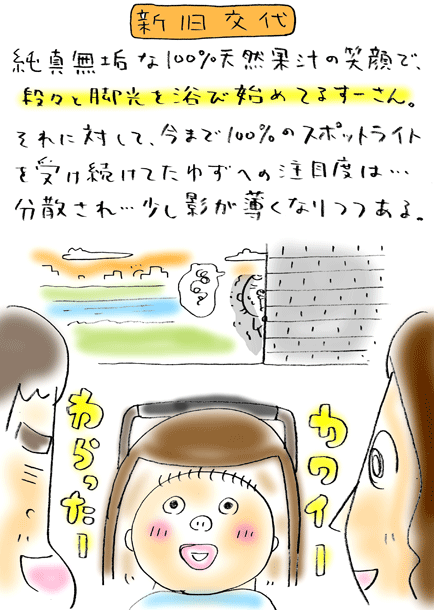 新旧交代
純真無垢な100%天然果汁の笑顔で、
段々と脚光を浴び始めてるすーさん。
それに対して、今まで100%のスポットライト
を受け続けてたゆずへの注目度は…
分散され…少し影が薄くなりつつある。
わらったー
カワイー